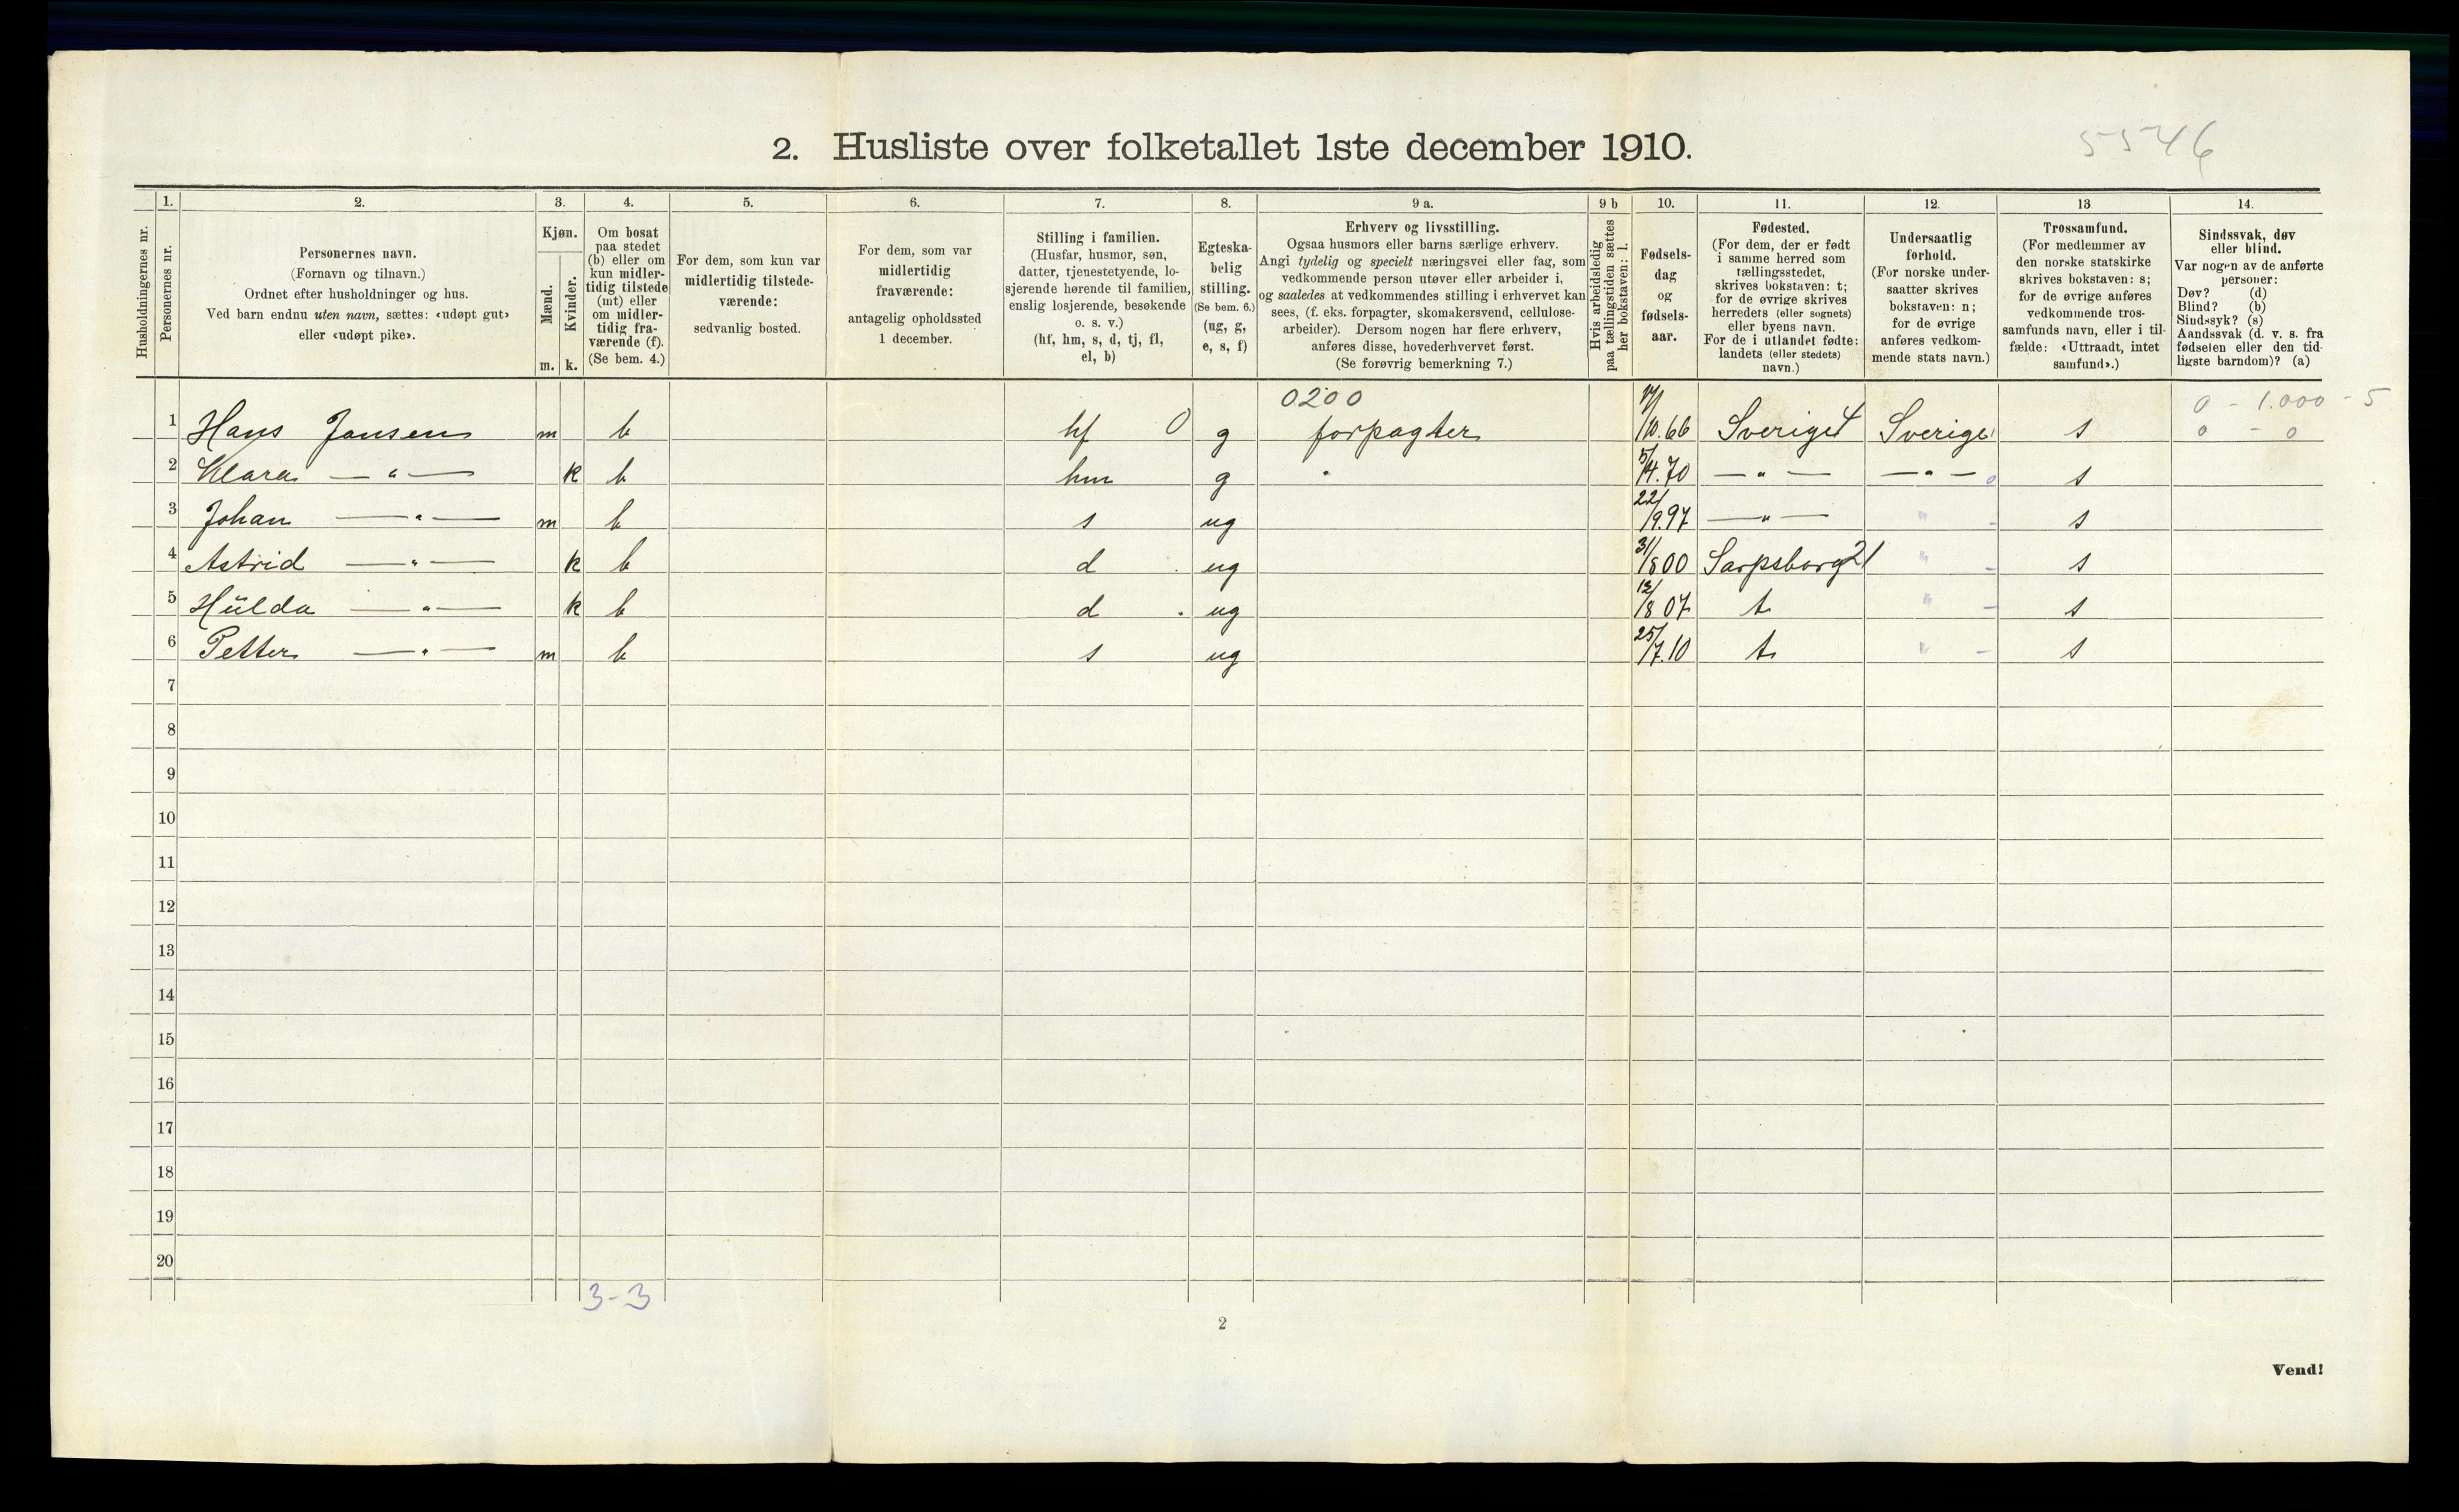 2. Husliste over folketallet 1ste december 1910.
5546
Husholdningernes nr.
1.
Personernes nr.
2.
Personernes navn.
(Fornavn og tilnavn.)
Ordnet efter husholdninger og hus.
Ved barn endnu uten navn, sættes: «udøpt gut»
eller «udøpt pike».
3.
Kjøn.
Mænd.
Kvinder.
m. k.
4.
Om bosat
paa stedet
(b) eller om
kun midler-
tidig tilstede
(mt) eller
om midler-
tidig fra-
værende (f).
(Se bem. 4.)
5.
For dem, som kun var
midlertidig tilstede-
værende:
sedvanlig bosted.
6.
For dem, som var
midlertidig
fraværende:
antagelig opholdssted
1 december.
7.
Stilling i familien.
(Husfar, husmor, søn,
datter, tjenestetyende, lo-
sjerende hørende til familien,
enslig losjerende, besøkende
o. s. v.)
(hf, hm, s, d, tj, fl,
el, b)
8.
Egteska-
belig
stilling.
(Se bem. 6.)
(ug, g,
e, s, f)
9 a.
Erhverv og livsstilling.
Ogsaa husmors eller barns særlige erhverv.
Angi tydelig og specielt næringsvei eller fag, som
vedkommende person utøver eller arbeider i,
og saaledes at vedkommendes stilling i erhvervet kan
sees, (f. eks. forpagter, skomakersvend, cellulose-
arbeider). Dersom nogen har flere erhverv,
anføres disse, hovederhvervet først.
(Se forøvrig bemerkning 7.)
9 b
Hvis arbeidsledig
paa tællingstiden sættes
her bokstaven: l.
10.
Fødsels-
dag
og
fødsels-
aar.
11.
Fødested.
(For dem, der er født
i samme herred som
tællingsstedet,
skrives bokstaven: t;
for de øvrige skrives
herredets (eller sognets)
eller byens navn.
For de i utlandet fødte:
landets (eller stedets)
navn.)
12.
Undersaatlig
forhold.
(For norske under-
saatter skrives
bokstaven: n;
for de øvrige
anføres vedkom-
mende stats navn.)
13
Trossamfund.
(For medlemmer av
den norske statskirke
skrives bokstaven: s;
for de øvrige anføres
vedkommende tros-
samfunds navn, eller i til-
fælde: «Uttraadt, intet
samfund».)
14.
Sindssvak, døv
eller blind.
Var nogen av de anførte
personer:
Døv? (d)
Blind? (b)
Sindssyk? (s)
Aandssvak (d. v. s. fra
fødselen eller den tid-
ligste barndom)? (a)
0200
0 - 1.000 - 5
1 Hans Jansen m b hf 0 g forpagter 17/10.66 Sverige 4 Sverige s 0 - 0
2 Klara — " — k b hm g 5/4.70 — " — — " — 0 s
3 Johan — " — m b s ug 22/9.97 — " — " - s
4 Astrid — " — k b d ug 31/8 00 Sarpsborg 21 " - s
5 Hülda — " — k b d ug 12/8 07 t " - s
6 Petter — " — m b s ug 25/7.10 t " - s
7
8
9
10
11
12
13
14
15
16
17
18
19
20
3-3
2
Vend!